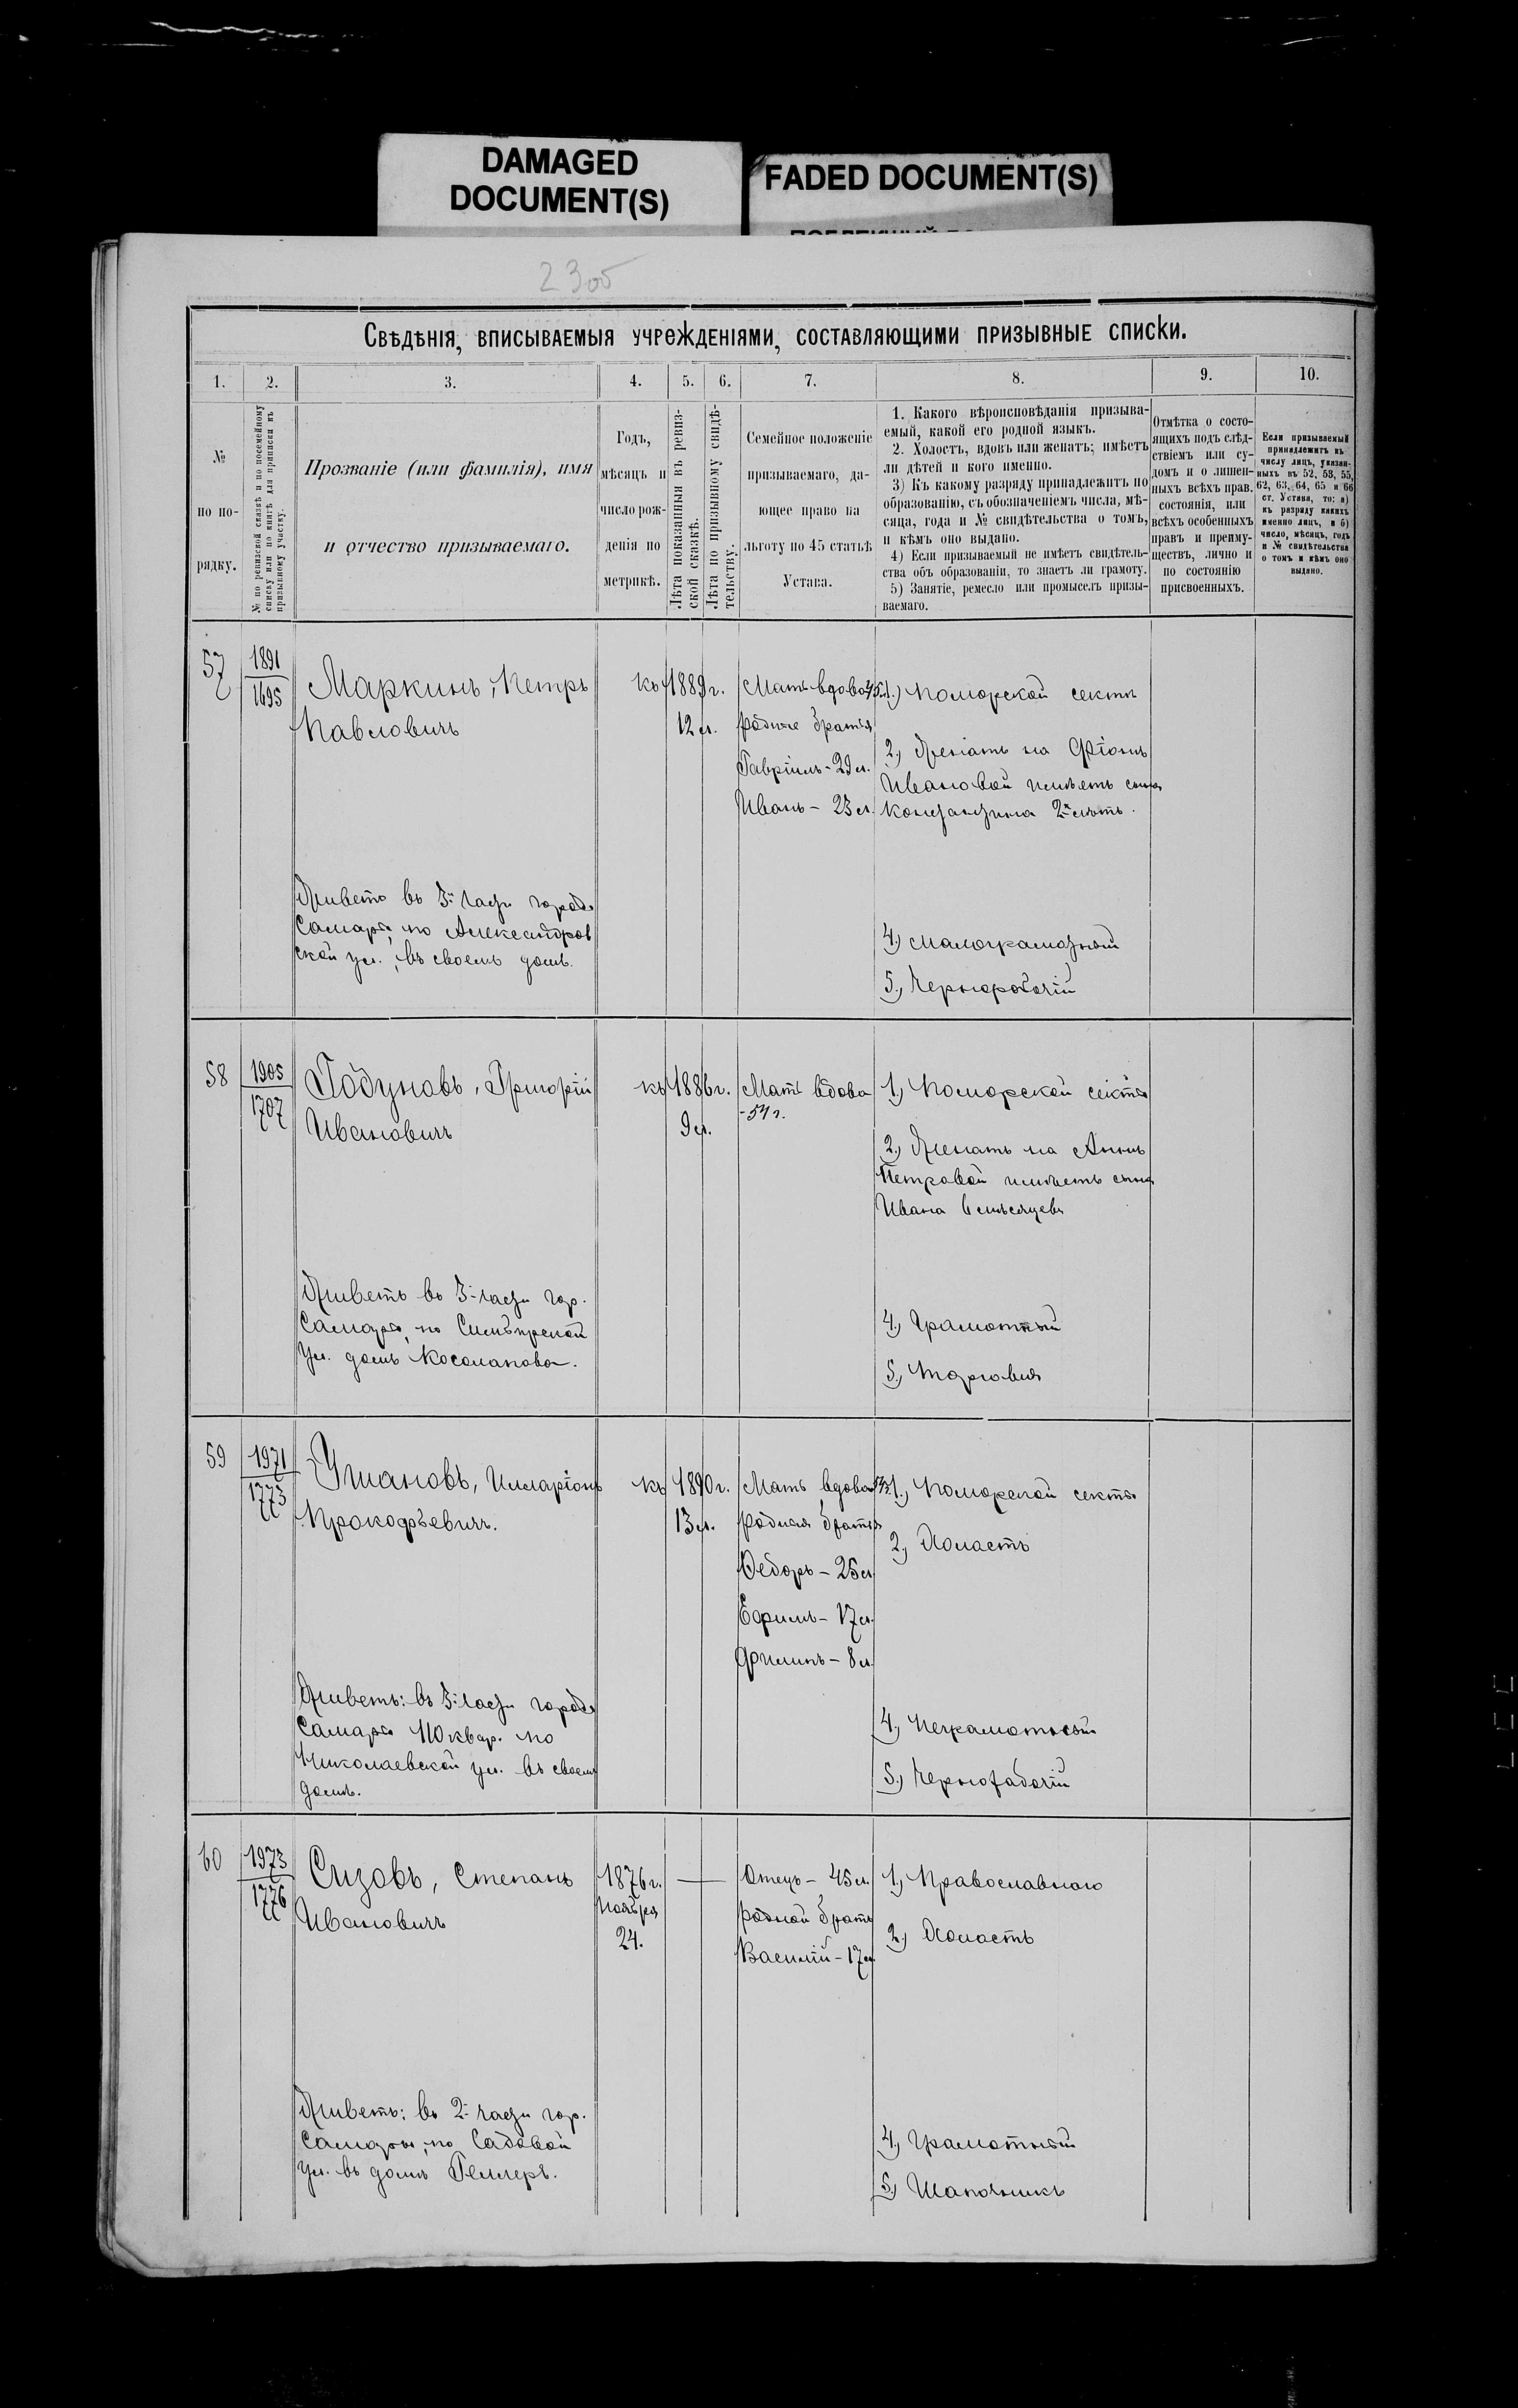 DAMAGED
DOCUMENT(S)
FADED DOCUMENT(S)
2305
Свѣдѣнія, вписываемыя учрежденіями, составляющими призывные списки.
1.
2.
3.
4.
5.
6.
7.
8.
9.
10.
№
по по-
рядку.
№ по ревизской сказкѣ и по посемейному
списку или по книгѣ для приписки къ
призывному участку.
Прозваніе (или фамилія), имя
и отчество призываемаго.
Годъ,
мѣсяцъ и
число рож-
денія по
метрикѣ.
Лѣта показанныя въ ревиз-
ской сказкѣ.
Лѣта по призывному свидѣ-
тельству.
Семейное положеніе
призываемаго, да-
ющее право на
льготу по 45 статьѣ
Устава.
1. Какого вѣроисповѣданія призыва-
емый, какой его родной языкъ.
2. Холостъ, вдовъ или женатъ; имѣетъ
ли дѣтей и кого именно.
3) Къ какому разряду принадлежитъ по
образованію, съ обозначеніемъ числа, мѣ-
сяца, года и № свидѣтельства о томъ,
и кѣмъ оно выдано.
4) Если призываемый не имѣетъ свидѣтель-
ства объ образованіи, то знаетъ ли грамоту.
5) Занятіе, ремесло или промыселъ призы-
ваемаго.
Отмѣтка о состо-
ящихъ подъ слѣд-
ствіемъ или су-
домъ и о лишен-
ныхъ всѣхъ прав.
состоянія, или
всѣхъ особенныхъ
правъ и преиму-
ществъ, лично и
по состоянію
присвоенныхъ.
Если призываемый
принадлежитъ къ
числу лицъ, указан-
ныхъ въ 52, 53, 55,
62, 63, 64, 65 и 66
ст. Устава, то: а)
къ разряду какихъ
именно лицъ, и б)
число, мѣсяцъ, годъ
и № свидѣтельства
о томъ и кѣмъ оно
выдано.
57
1891
1695
Маркинъ, Петръ
Павловичъ
къ 1889 г.
12 л.
Мать вдова 45 л.
родные братья
Гавріилъ - 29 л.
Иванъ - 23 л.
1.) Поморской секты
2.) Женатъ на
Ивановой имѣетъ сына
Константина 2-лѣтъ.
Живетъ въ 3й части города
Самары, по Александров
ской ул., въ своемъ домѣ.
4.) Малограмотный
5.) Чернорабочій
58
1905
1707
Годуновъ, Григорій
Ивановичъ
къ 1886 г.
9 л.
Мать вдова
- 54 г.
1.) Поморской секты
2.) Женатъ на Аннѣ
Петровой имѣетъ сына
Ивана 6 мѣсяцевъ
Живетъ въ 3-части гор.
Самары, по Симбирской
ул. домъ
4.) Грамотный
5.) Торговля
59
1971
1773
Ушановъ, Илларіонъ
Прокофьевичъ.
къ 1890 г.
13 л.
Мать вдова
родные братья
Федоръ - 25 л.
Ефимъ - 17 л.
Филипъ - 8 л.
1.) Поморской секты
2.) Холостъ
Живетъ: въ 3-части города
Самары 110 квар. по
Николаевской ул. въ своемъ
домѣ.
4.) Неграмотный
5.) Чернорабочій
60
1973
1776
Сизовъ, Степанъ
Ивановичъ
1876 г.
Ноября
24.
—
Отецъ - 45 л.
родной братъ
Василій - 17 л.
1.) Православнаго
2.) Холостъ
Живетъ: въ 2-части гор.
Самары, по Садовой
ул. въ домѣ Геллеръ.
4.) Грамотный
5.) Шапочникъ